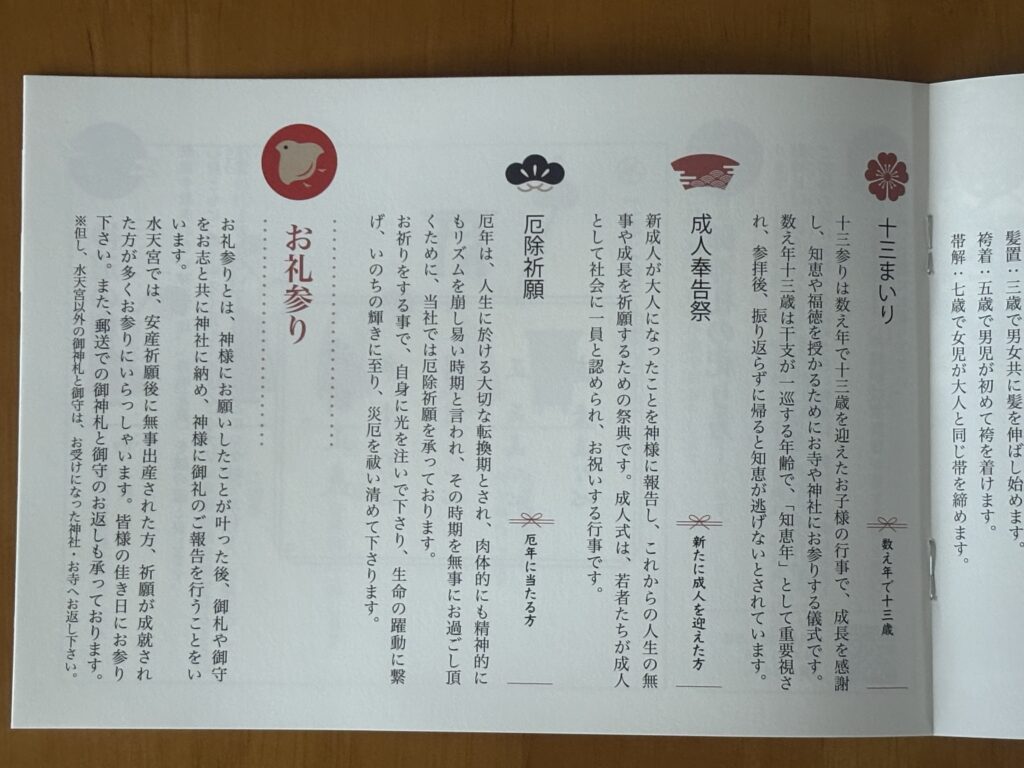 髪置：三歳で男女共に髪を伸ばし始めます。
袴着：五歳で男児が初めて袴を着けます。
帯解：七歳で女児が大人と同じ帯を締めます。
十三まいり
数え年で十三歳
十三参りは数え年で十三歳を迎えたお子様の行事で、成長を感謝
し、知恵や福徳を授かるためにお寺や神社にお参りする儀式です。
数え年十三歳は干支が一巡する年齢で、「知恵年」として重要視さ
れ、参拝後、振り返らずに帰ると知恵が逃げないとされています。
成人奉告祭
新たに成人を迎えた方
新成人が大人になったことを神様に報告し、これからの人生の無
事や成長を祈願するための祭典です。成人式は、若者たちが成人
として社会に一員と認められ、お祝いする行事です。
厄除祈願
厄年に当たる方
厄年は、人生に於ける大切な転換期とされ、肉体的にも精神的に
もリズムを崩し易い時期と言われ、その時期を無事にお過ごし頂
くために、当社では厄除祈願を承っております。
お祈りをする事で、自身に光を注いで下さり、生命の躍動に繋
げ、いのちの輝きに至り、災厄を祓い清めて下さります。
お礼参り
お礼参りとは、神様にお願いしたことが叶った後、御札や御守
をお志と共に神社に納め、神様に御礼のご報告を行うことをい
います。
水天宮では、安産祈願後に無事出産された方、祈願が成就され
た方が多くお参りにいらっしゃいます。皆様の佳き日にお参り
下さい。また、郵送での御神札と御守のお返しも承っております。
※但し、水天宮以外の御神札と御守は、お受けになった神社・お寺へお返し下さい。